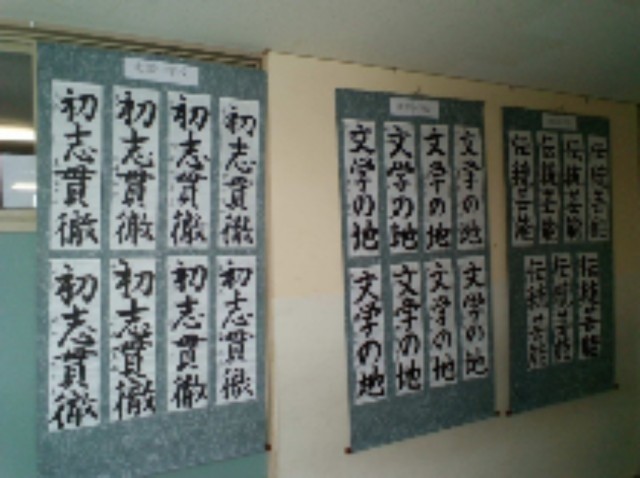 初志貫徹
初志貫徹
初志貫徹
初志貫徹
初志貫徹
初志貫徹
初志貫徹
初志貫徹
文学の地
文学の地
文学の地
文学の地
文学の地
文学の地
文学の地
文学の地
伝統芸能
伝統芸能
伝統芸能
伝統芸能
伝統芸能
伝統芸能
伝統芸能